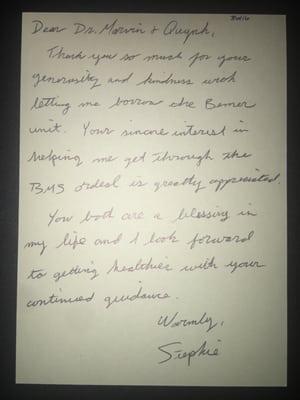 Dear Dr. Marvin & Quynh,
Thank you so much for your
generosity and kindness with
letting me borrow the Bemer
unit. Your sincere interest in
helping me get through the
BMS ordeal is greatly appreciated.
You both are a blessing in
my life and I look forward
to getting healthier with your
continued guidance.
Warmly,
Stephie